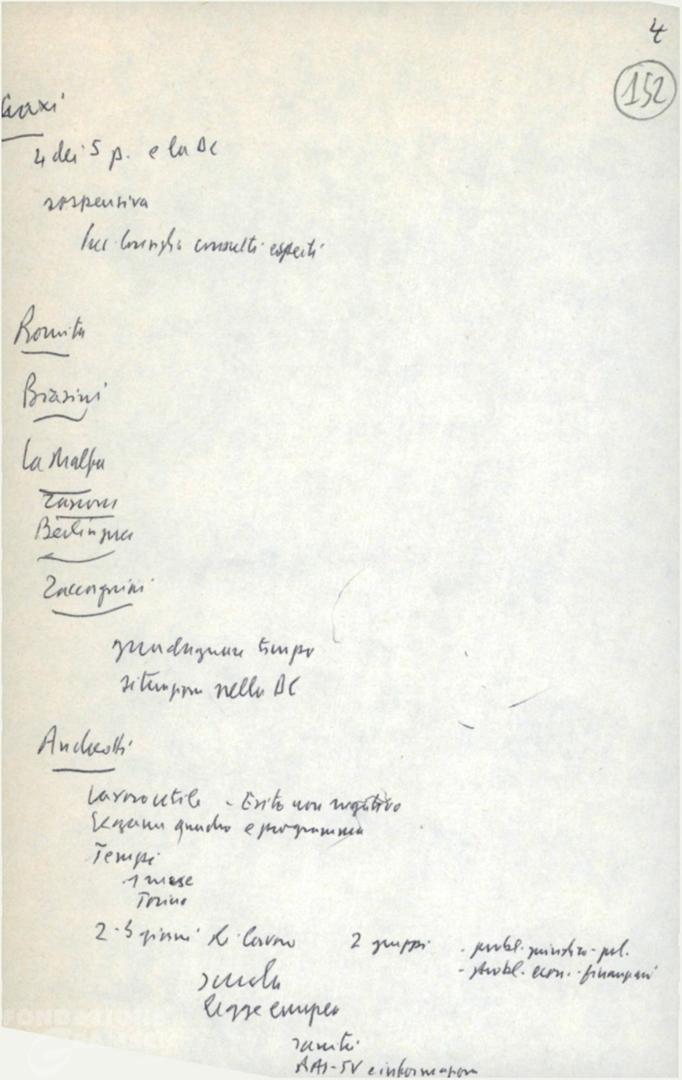 4
152
Craxi
4 dei 5 p. e la DC
sospensiva
consulti esperti
Romita
Biasini
La Malfa
Zanone
Berlinguer
Zaccagnini
guadagnare tempo
situazione nella DC
Andreotti
Lavoro utile - Esito non negativo
Legame quadro e programma
Tempi
1 mese
Torino
2-3 giorni di lavoro 2 gruppi - probl. giuridico-pol.
- probl. econ.-finanziari
scuola
Legge europea
sanità
RAI-TV e informazione
FONDAZIONE